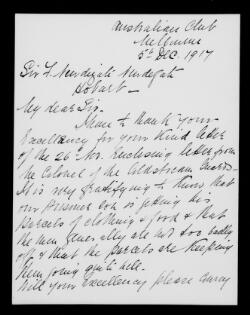 Australian Club
Melbourne
5th Dec. 1917
Sir F. Newdigate Newdegate
Hobart —
My dear Sir.
I have to thank your
Excellency for your kind letter
of the 26 Nov. enclosing letter from
the Colonel of the Coldstream Guards.
It is very gratifying to know that
our prisoner is getting his
parcels of clothing & food & that
the men generally are not too badly
off & that the parcels are keeping
them going quite well.
Will your Excellency please convey